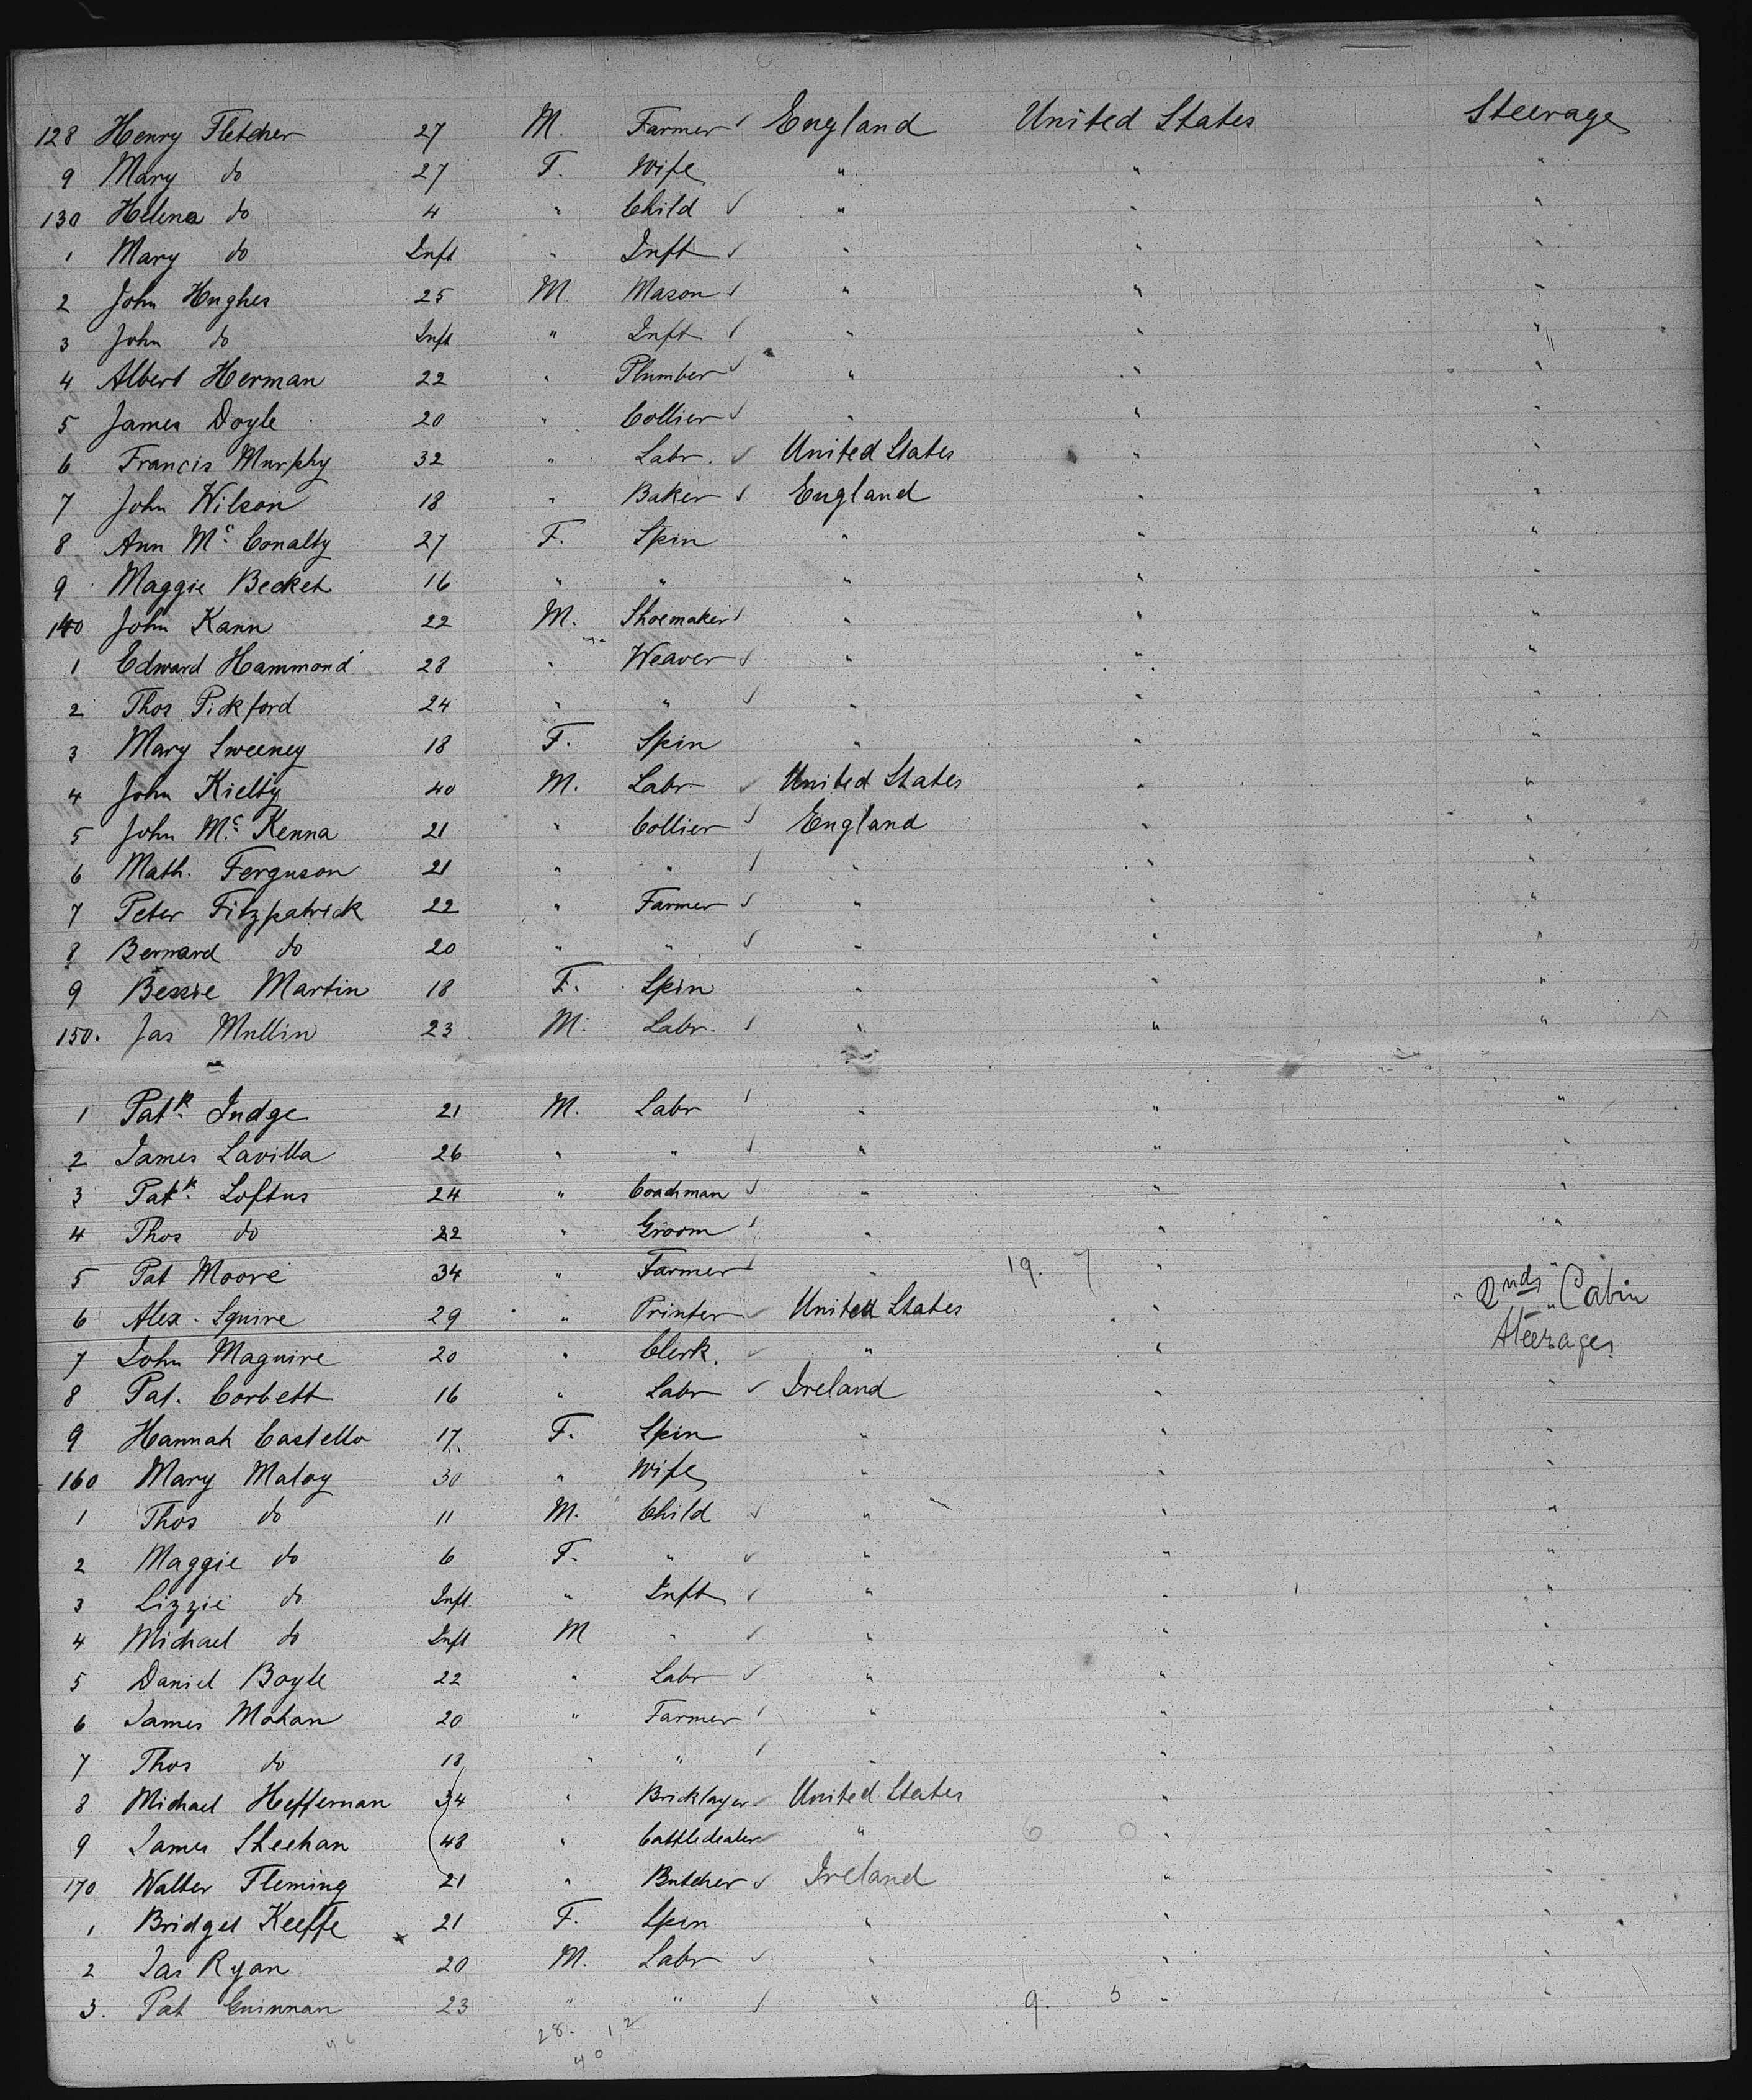 128 Henry Fletcher 27 M. Farmer England United States Steerage
9 Mary do 27 F. Wife " " "
130 Helena do 4 " Child " " "
1 Mary do Inft " Inft " " "
2 John Hughes 25 M. Mason " " "
3 John do Inft " Inft " " "
4 Albert Herman 22 " Plumber " " "
5 James Doyle 20 " Collier " " "
6 Francis Murphy 32 " Labr. United States " "
7 John Wilson 18 " Baker England " "
8 Ann Mc Conalty 27 F. Spin " " "
9 Maggie Becket 16 " " " " "
140 John Kann 22 M. Shoemaker " " "
1 Edward Hammond 28 " Weaver " " "
2 Thos Pickford 24 " " " " "
3 Mary Sweeney 18 F. Spin " " "
4 John Kielty 40 M. Labr United States " "
5 John Mc Kenna 21 " Collier England " "
6 Math. Ferguson 21 " " " " "
7 Peter Fitzpatrick 22 " Farmer " " "
8 Bernard do 20 " " " " "
9 Bessie Martin 18 F. Spin " " "
150. Jas Mullin 23 M. Labr. " " "
1 Patk. Judge 21 M. Labr " " "
2 James Lavilla 26 " " " " "
3 Patk. Loftus 24 " Coachman " " "
4 Thos do 22 " Groom " " "
5 Pat Moore 34 " Farmer " 19. 7 " "
6 Alex. Squire 29 " Printer United States " " 2nds Cabin
7 John Maguire 20 " Clerk. " " Steerages
8 Pat. Corbett 16 " Labr Ireland " "
9 Hannah Castello 17 F. Spin " " "
160 Mary Maloy 30 " Wife " " "
1 Thos do 11 M. Child " " "
2 Maggie do 6 F. " " " "
3 Lizzie do Inft " Inft " " "
4 Michael do Inft M " " " "
5 Daniel Boyle 22 " Labr " " "
6 James Mohan 20 " Farmer " " "
7 Thos do 18 " " " " "
8 Michael Heffernan 34 " Bricklayer United States " "
9 James Sheehan 48 " Cattledealer " 6 0 " "
170 Walter Fleming 21 " Butcher Ireland " "
1 Bridget Keeffe 21 F. Spin " " "
2 Jas Ryan 20 M. Labr " " "
3. Pat Guinnan 23 " " " 9. 5 " "
28. 12
40